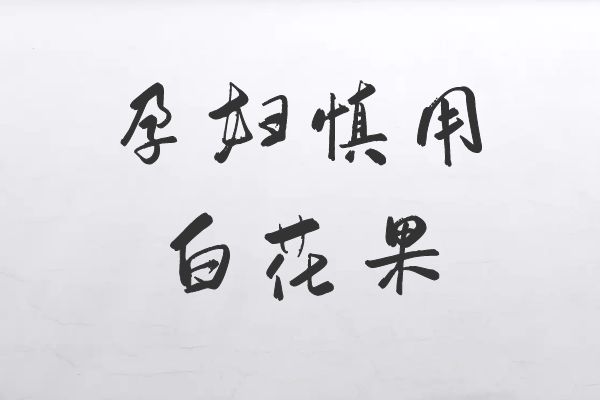 孕妇慎用
白花果